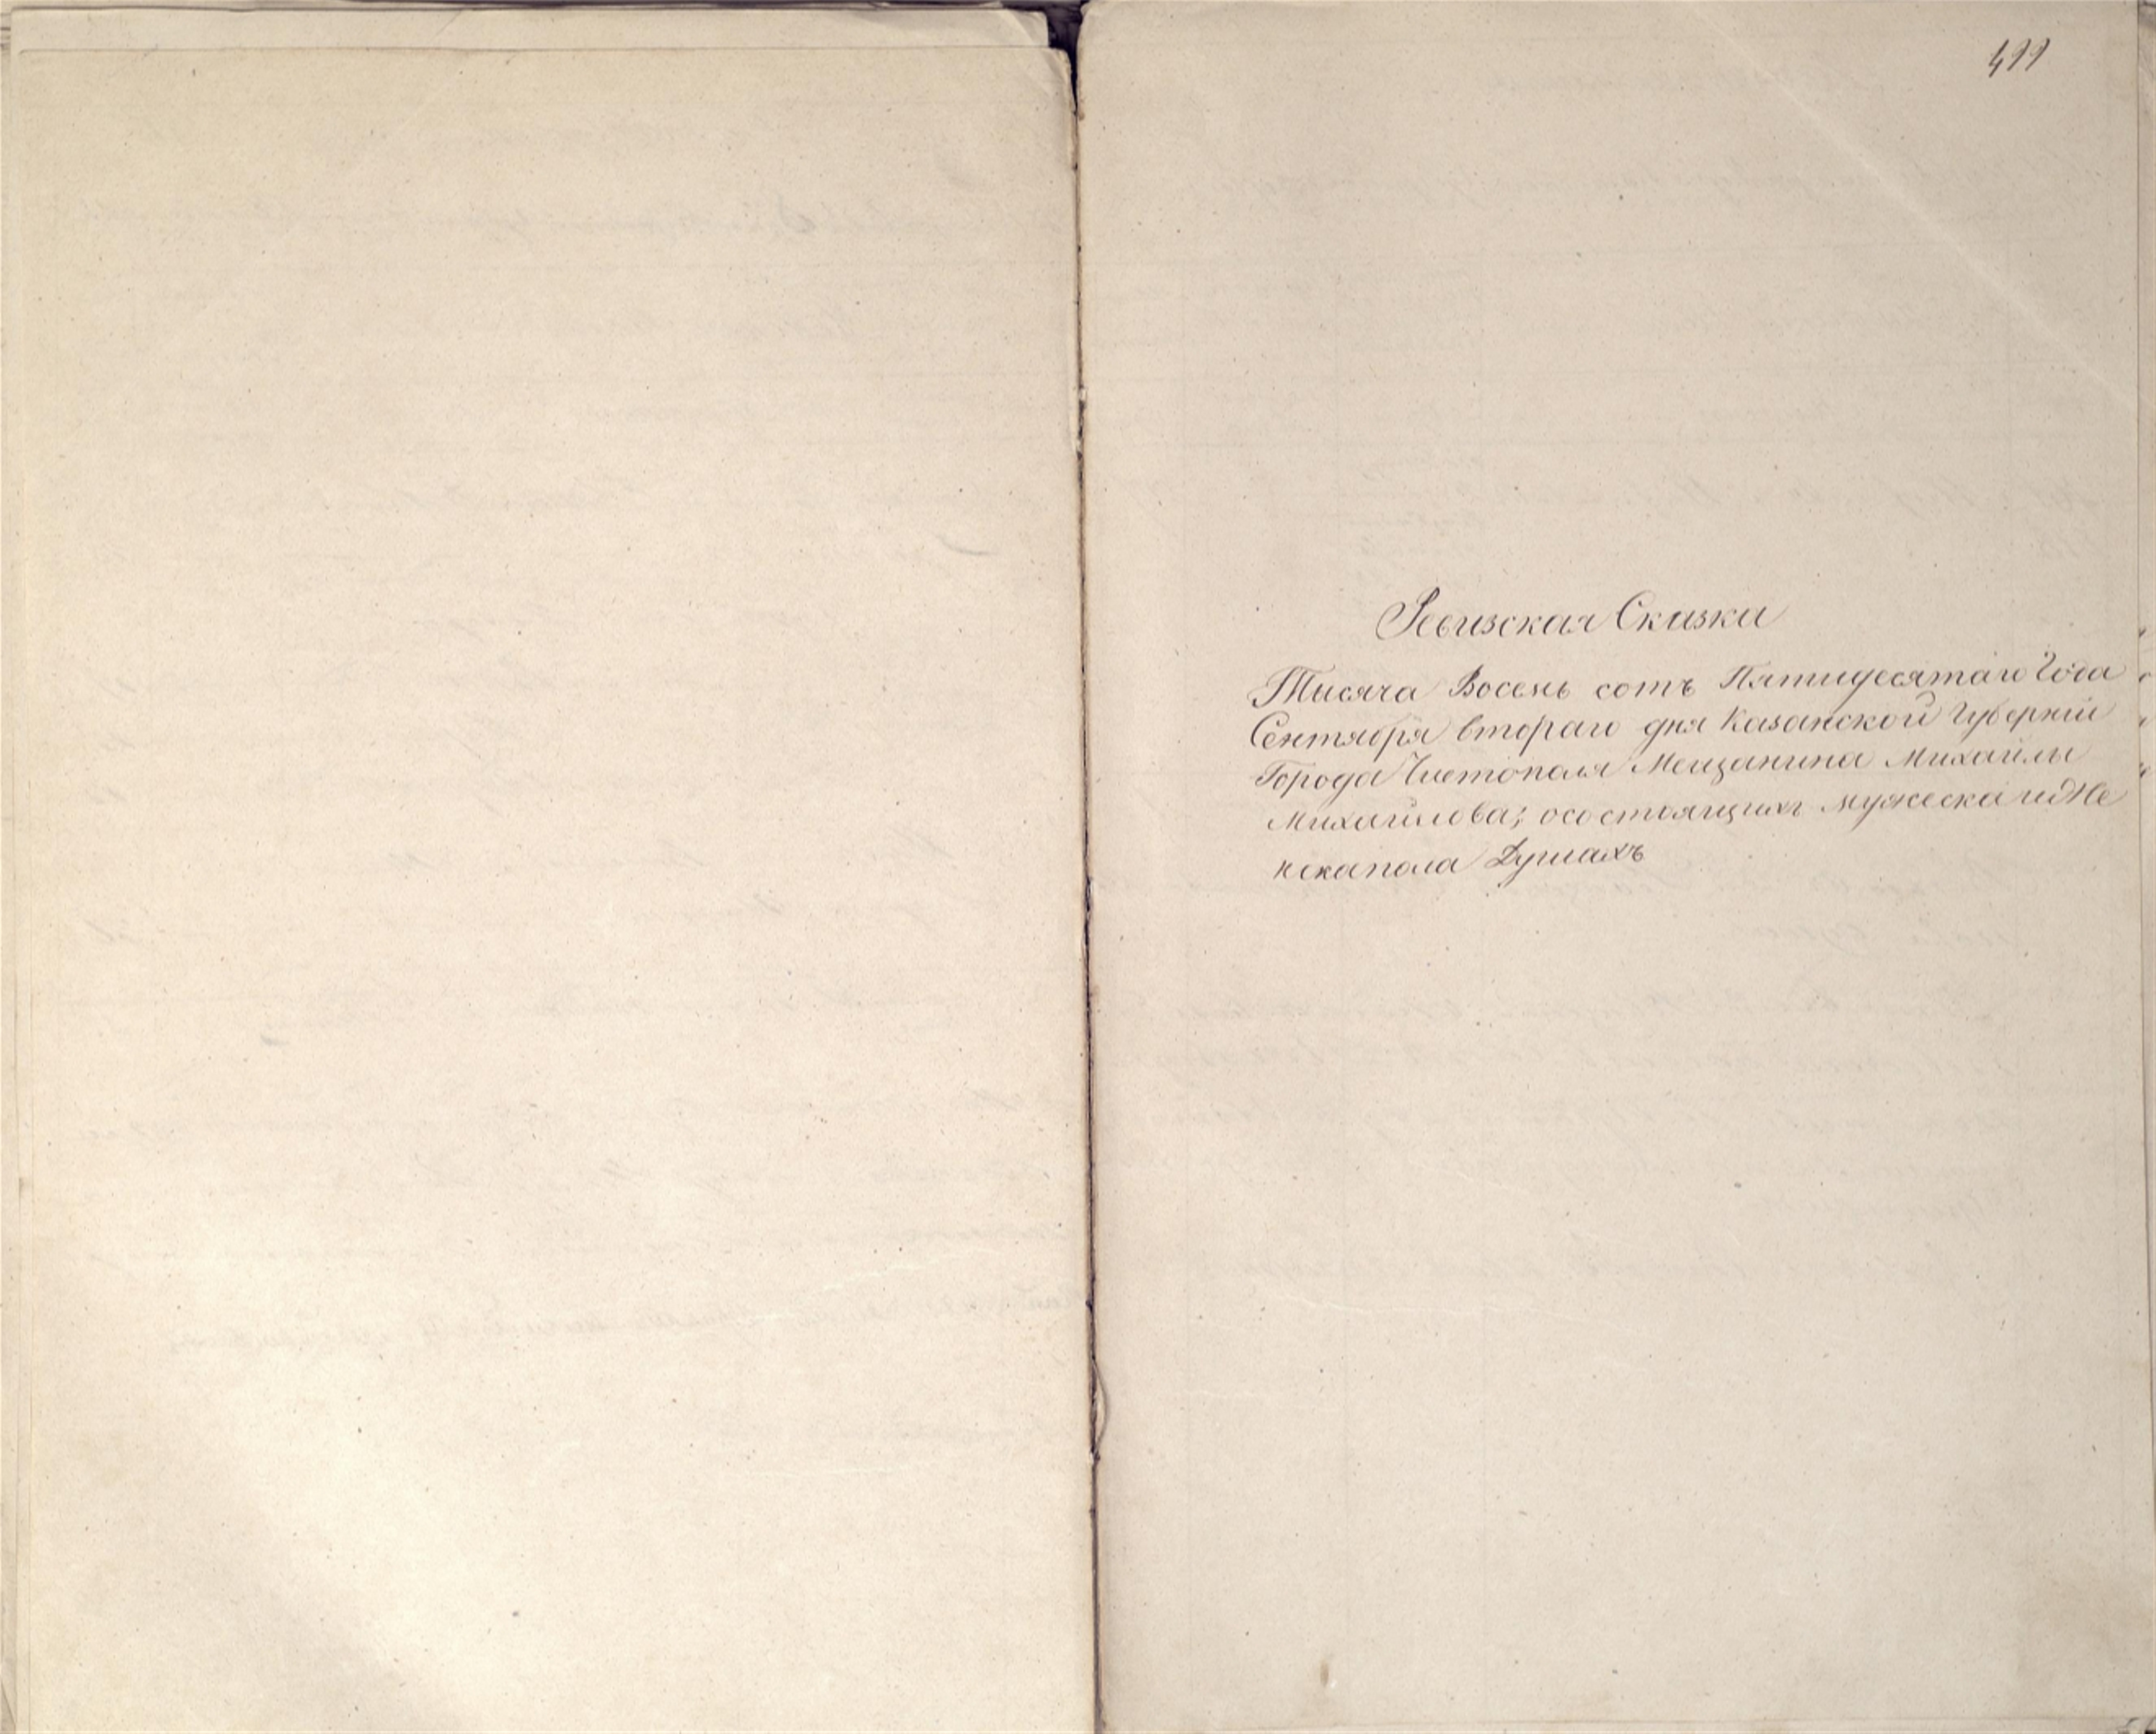 499
Ревизская Сказка
Тысяча Восемь сотъ Пятидесятаго Года
Сентября втораго дня Казанской Губерніи
Города Чистополя Мещанина Михайлы
Михайлова; осостоящихъ мужеска иже
нскапола Душахъ